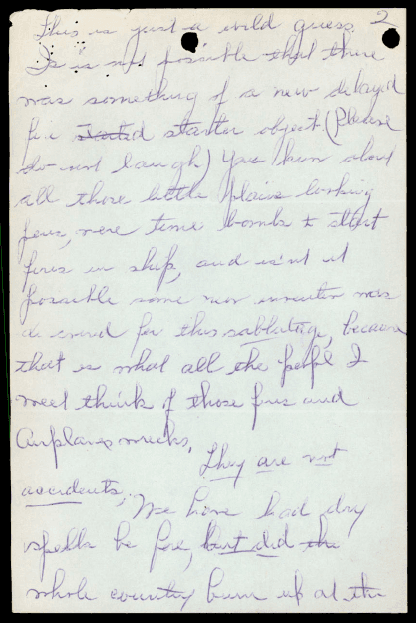 This is just a wild guess. 2
Is is not possible that there
was something of a new delayed
fire started starter object (Please
do not laugh) You know about
all those little plain looking
pens, were time bombs to start
fires in ship, and isn't it
possible some new invention was
used for this sabbatage, because
that is what all the peopl I
meet think of those fires and
Airplanes wrecks.
They are not
accidents,
We have had dry
spells be fore, but did the
whole country burn up at the